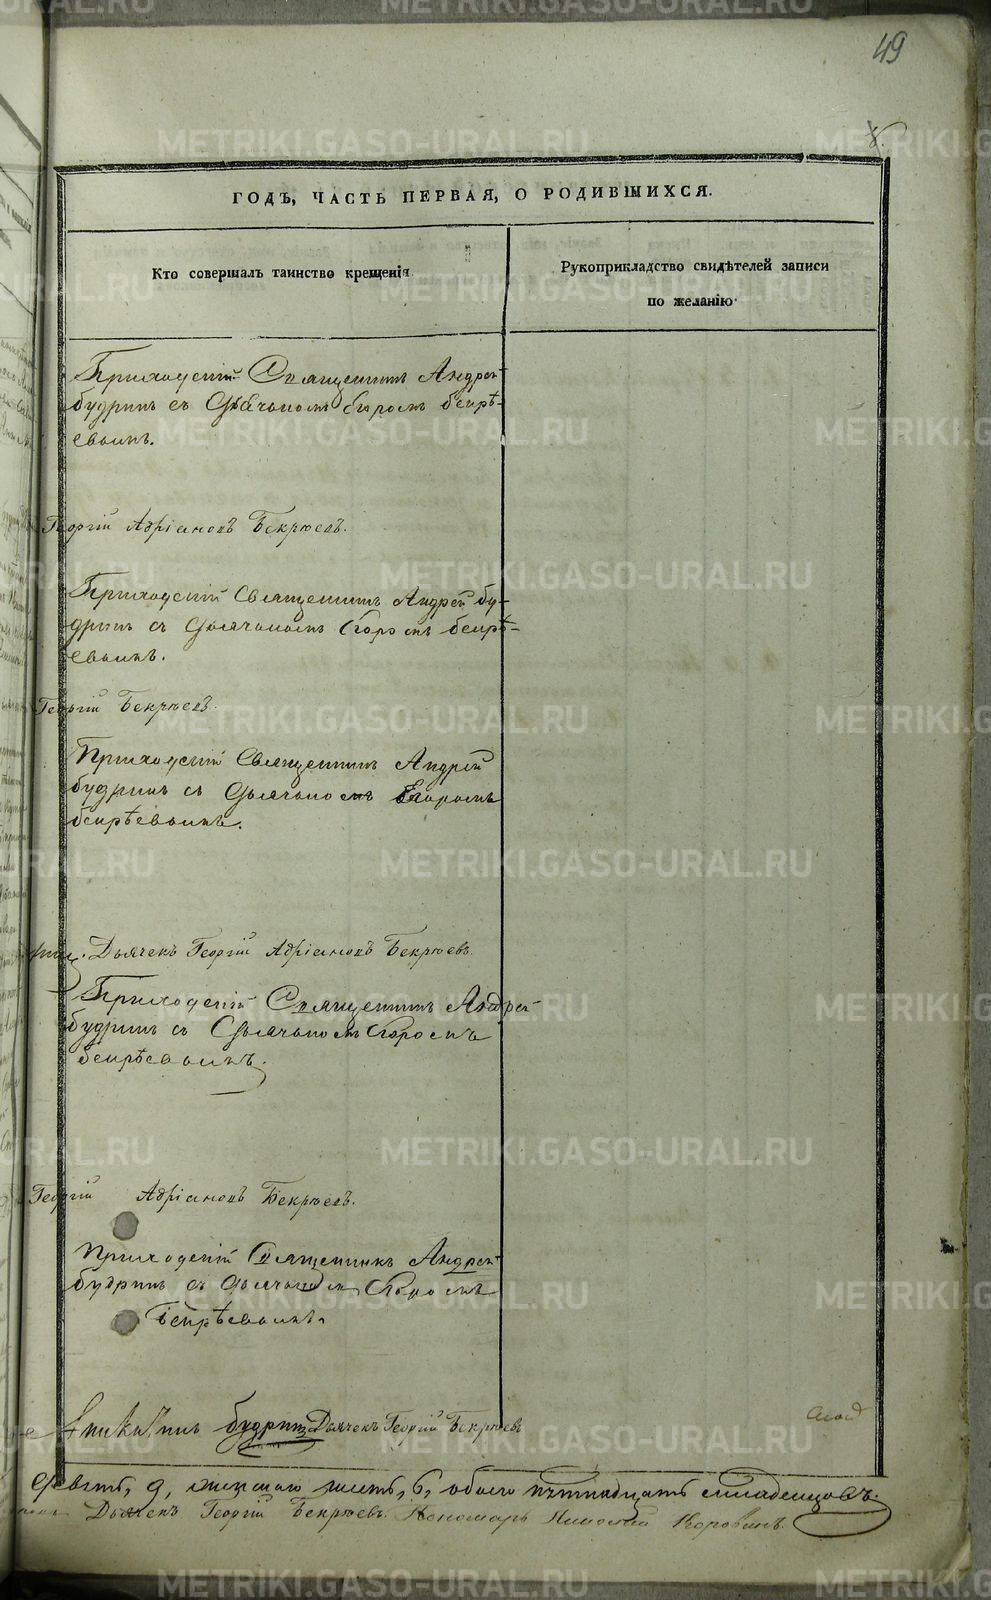 METRIKI.GASO-URAL.RU
49
8.
ГОДЪ, ЧАСТЬ ПЕРВАЯ, О РОДИВШИХСЯ.
Кто совершалъ таинство крещенія
Рукоприкладство свидѣтелей записи
по желанію
Приходскій Священникъ Андрей
будринъ съ Дьячкомъ Егоромъ бекрѣ-
евымъ.
Георгій Адріановъ Бекрюевъ.
Приходскій Священникъ Андрей бу-
дринъ съ Дьячкомъ Егоромъ бекрѣ-
евымъ.
Георгій Бекрюевъ.
Приходскій Священникъ Андрей
будринъ съ Дьячкомъ Егоромъ
бекрѣевымъ.
Дьячекъ Георгій Адріановъ Бекрюевъ.
Приходскій Священникъ Андрей
будринъ съ Дьячкомъ Егоромъ
бекрѣевымъ.
Георгій Адріановъ Бекрюевъ.
Приходскій Священникъ Андрей
будринъ съ Дьячкомъ Егоромъ
бекрѣевымъ.
будринъ Дьячекъ Георгій Бекрюевъ
девять, 9, женскаго шесть, 6, обоего пятнадцать младенцовъ.
Дьячекъ Георгій Бекрюевъ. Пономарь Николай Коровинъ.